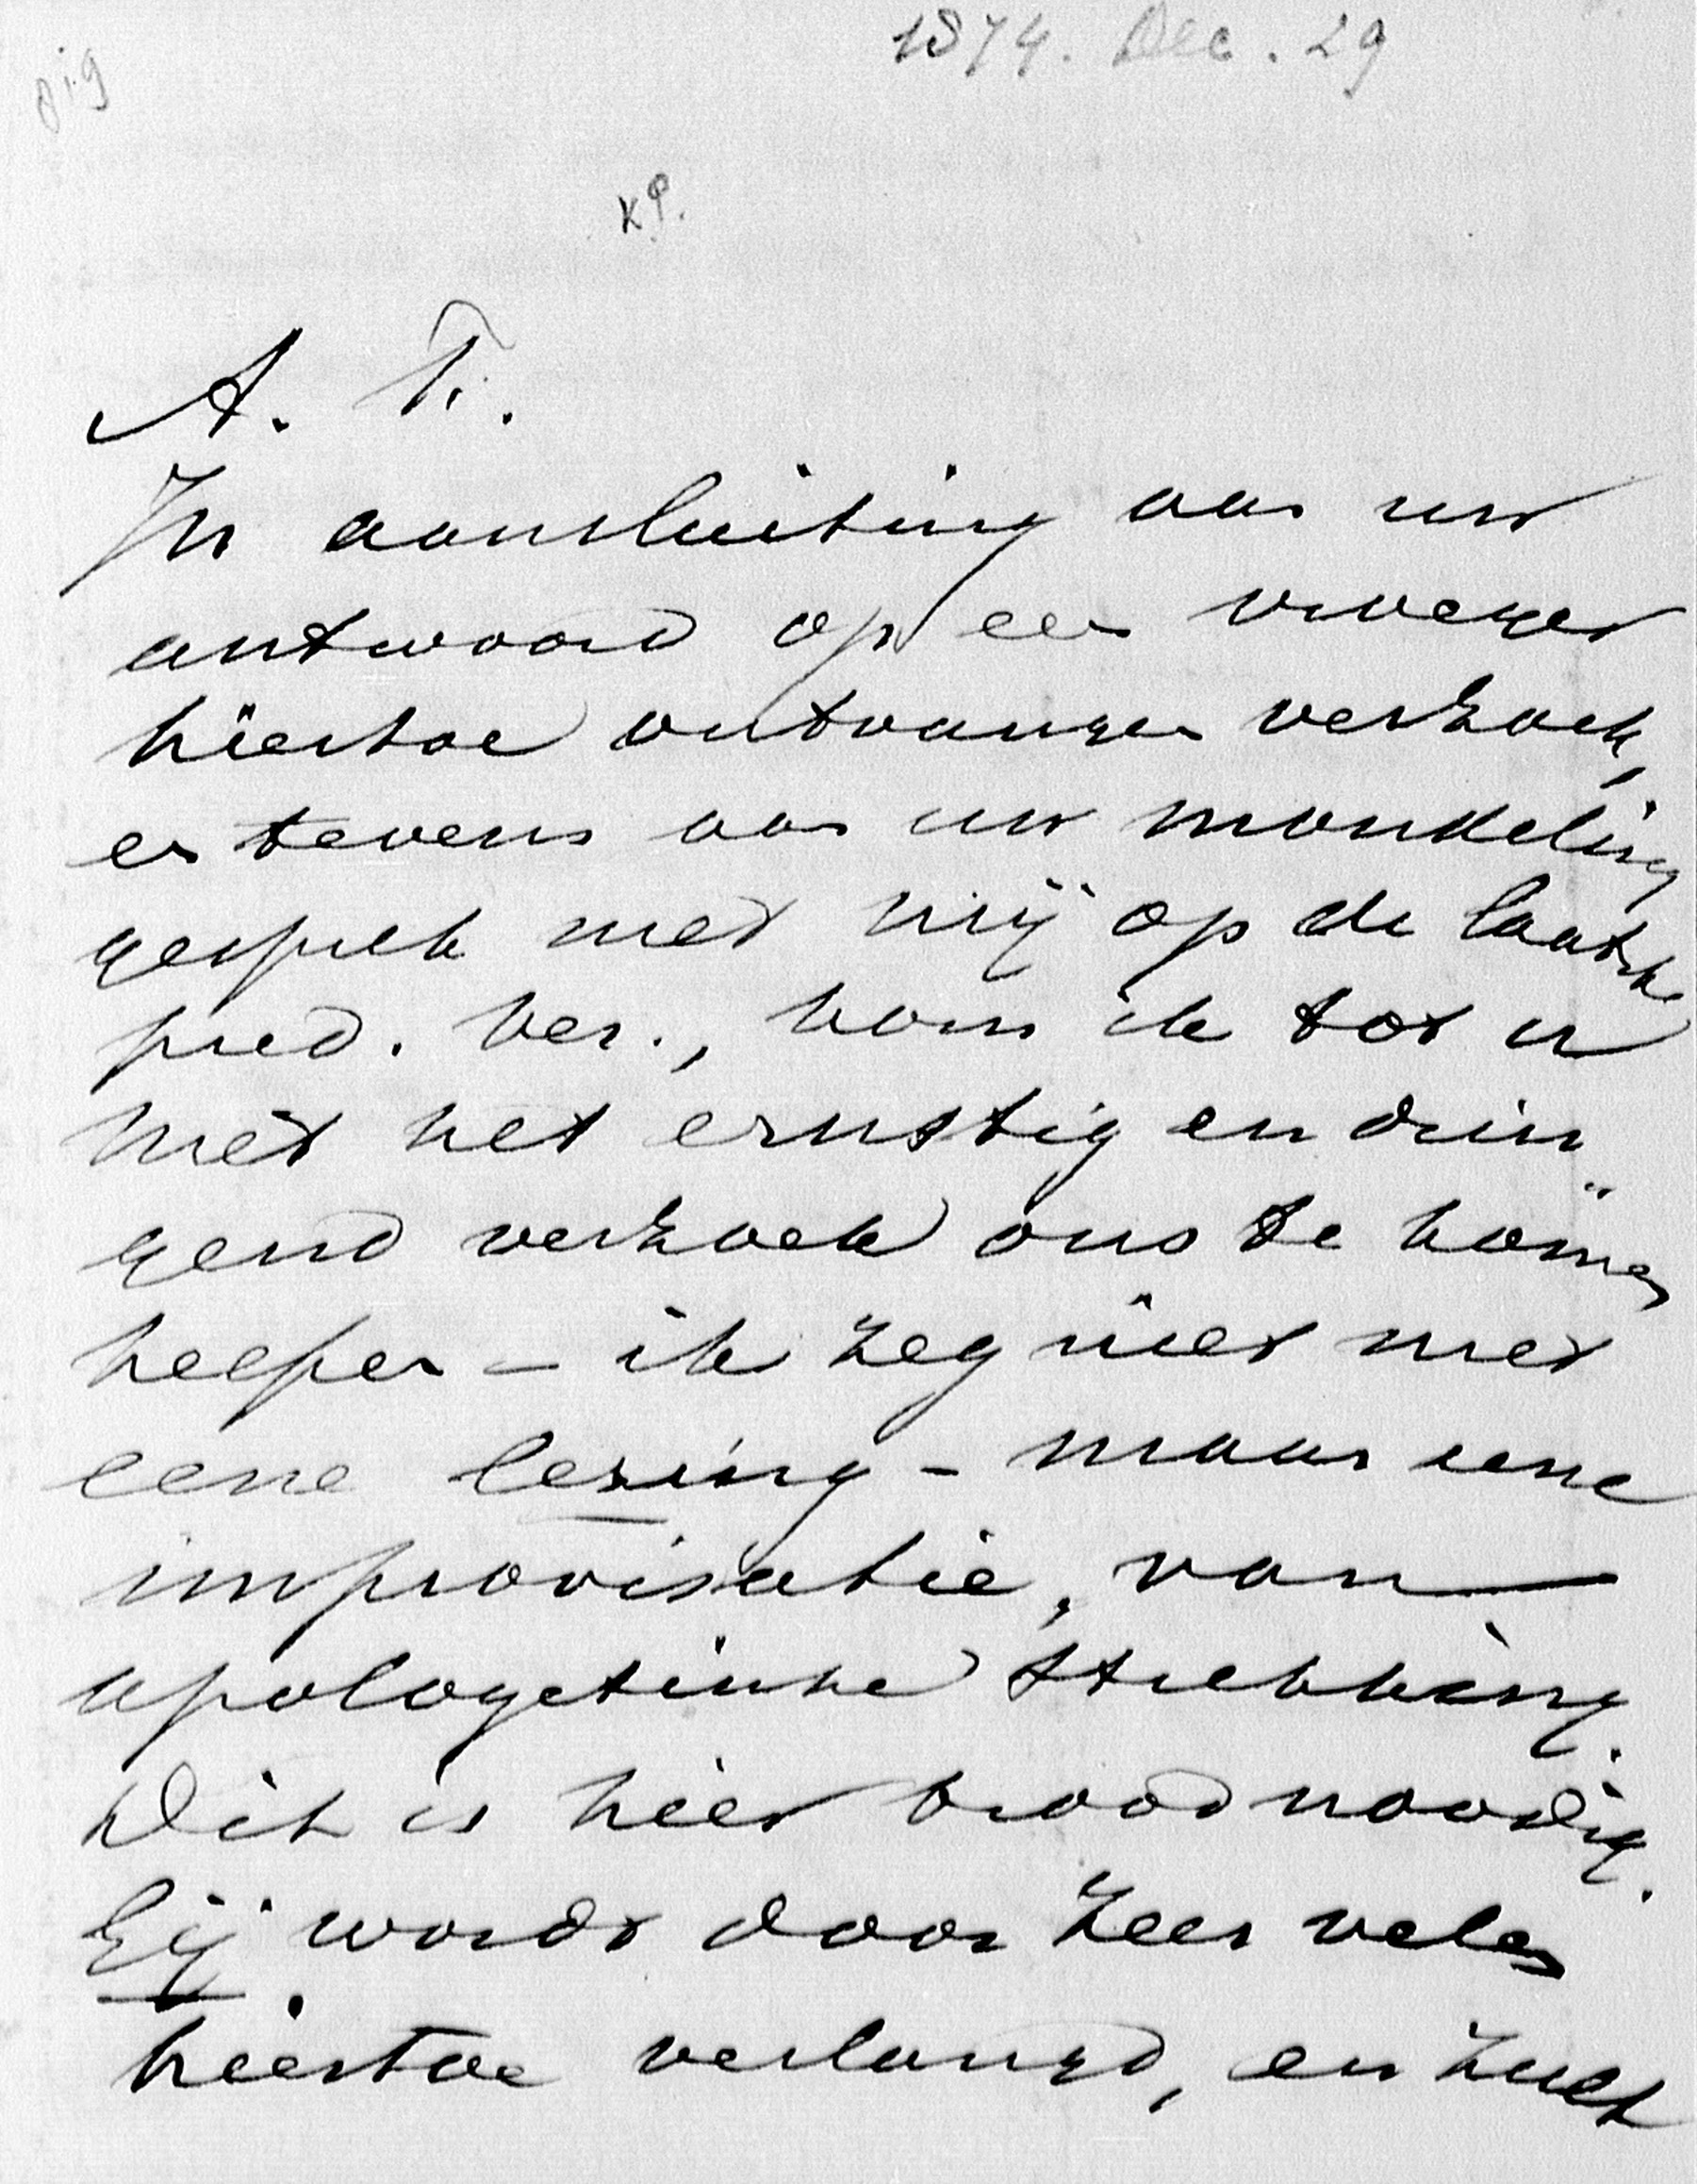 1874. Dec. 29
A. F.
In aansluiting aan uw
antwoord op een vroeger
hiertoe ontvangen verzoek,
en tevens aan uw mondeling
gesprek met mij op de laatste
pred. ver., kom ik tot u
met het ernstig en drin
gend verzoek ons te komen
helpen – ik zeg niet met
eene lezing – maar eene
improvisatie, van
apologetische strekking.
Dit is hier broodnoodig.
Gij wordt door zeer velen
hiertoe verlangd, en zult